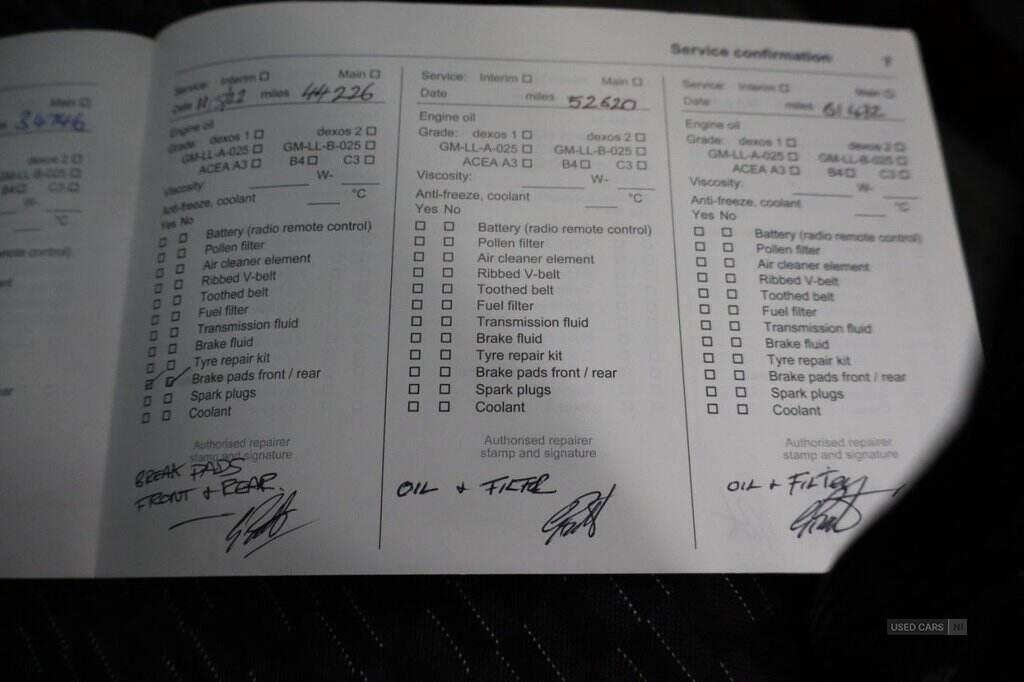 Service confirmation
Main
34746
dexos 2
C3
W-
°C
Service: Interim Main
Date miles 44226
Engine oil
Grade: dexos 1 dexos 2
GM-LL-A-025 GM-LL-B-025
ACEA A3 B4 C3
Viscosity: W-
Anti-freeze, coolant °C
Yes No
Battery (radio remote control)
Pollen filter
Air cleaner element
Ribbed V-belt
Toothed belt
Fuel filter
Transmission fluid
Brake fluid
Tyre repair kit
Brake pads front / rear
Spark plugs
Coolant
Authorised repairer
stamp and signature
BREAK PADS
FRONT + REAR.
Service: Interim Main
Date miles 52620
Engine oil
Grade: dexos 1 dexos 2
GM-LL-A-025 GM-LL-B-025
ACEA A3 B4 C3
Viscosity: W-
Anti-freeze, coolant °C
Yes No
Battery (radio remote control)
Pollen filter
Air cleaner element
Ribbed V-belt
Toothed belt
Fuel filter
Transmission fluid
Brake fluid
Tyre repair kit
Brake pads front / rear
Spark plugs
Coolant
Authorised repairer
stamp and signature
OIL + FILTER
Service: Interim Main
Date miles
Engine oil
Grade: dexos 1 dexos 2
GM-LL-A-025 GM-LL-B-025
ACEA A3 B4 C3
Viscosity: W-
Anti-freeze, coolant °C
Yes No
Battery (radio remote control)
Pollen filter
Air cleaner element
Ribbed V-belt
Toothed belt
Fuel filter
Transmission fluid
Brake fluid
Tyre repair kit
Brake pads front / rear
Spark plugs
Coolant
Authorised repairer
stamp and signature
OIL + FILTER
USED CARS NI